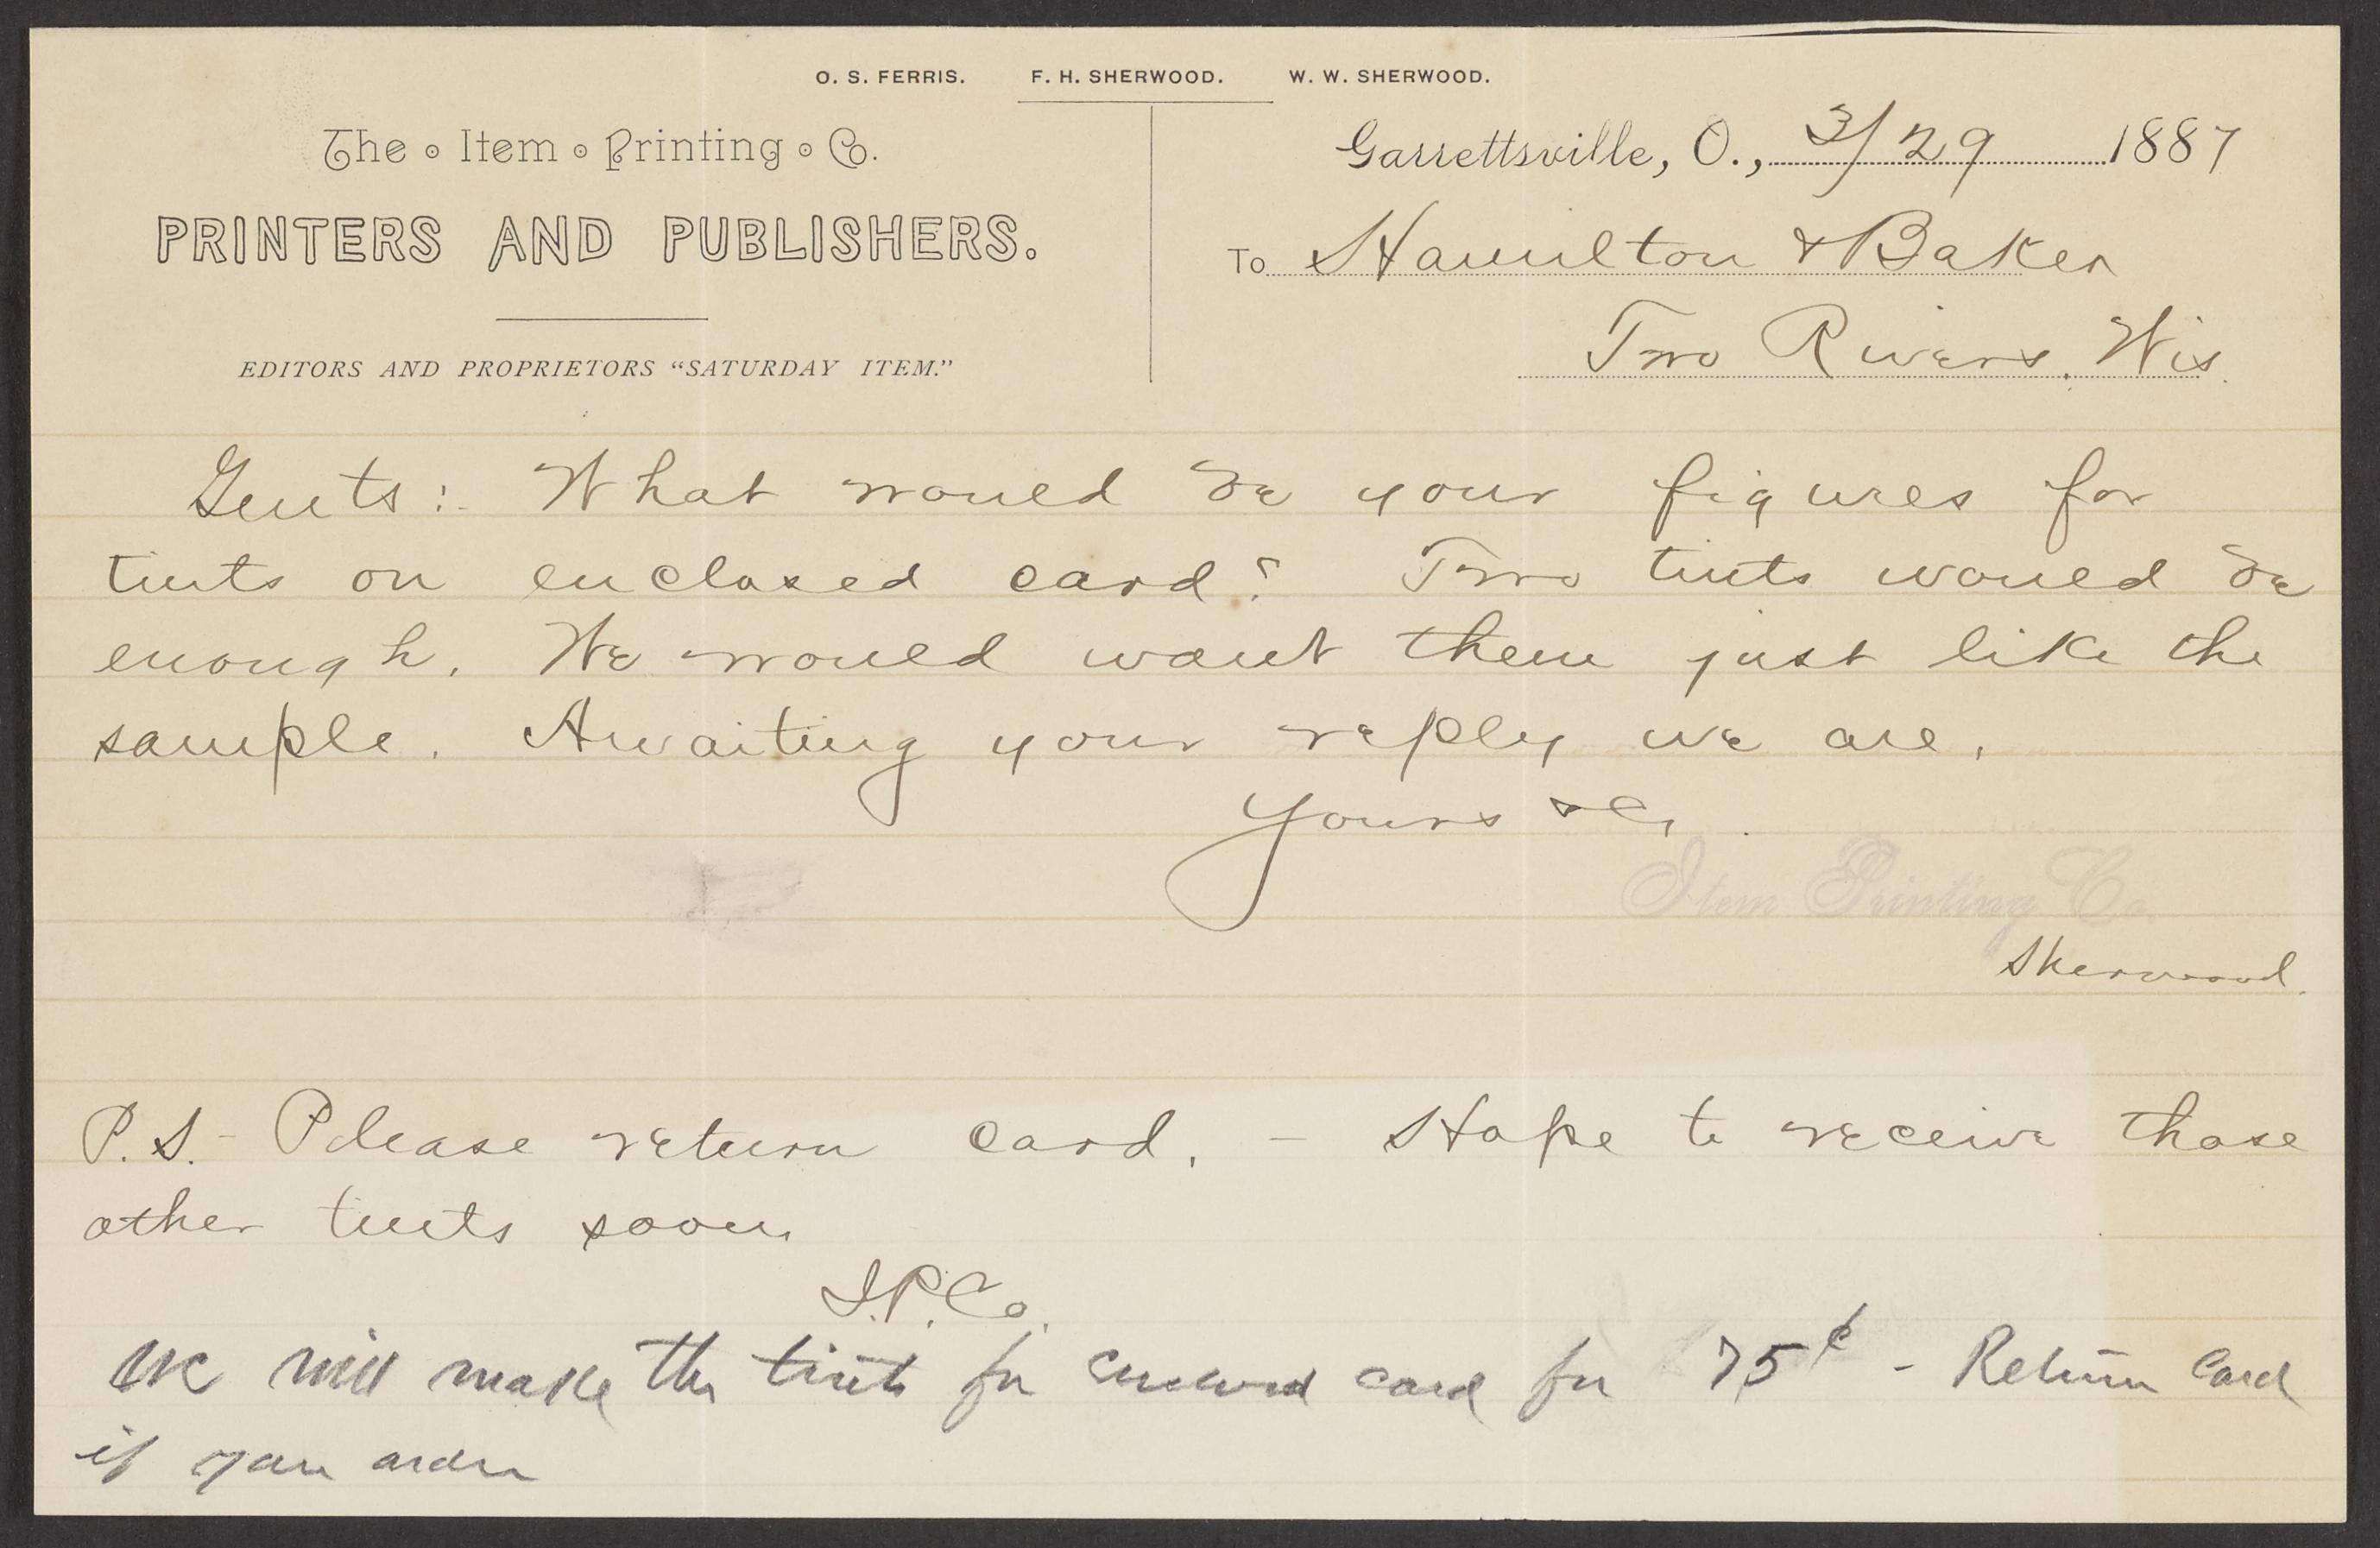 O. S. FERRIS. F. H. SHERWOOD. W. W. SHERWOOD.
The Item Printing Co.
PRINTERS AND PUBLISHERS.
EDITORS AND PROPRIETORS "SATURDAY ITEM."
Garrettsville, O., 3/29 1887
To Hamilton & Baker
Two Rivers, Wis.
Gents: What would be your figures for
tints on enclosed card? Two tints would be
enough. We would want them just like the
sample. Awaiting your reply we are,
Yours &c.
Item Printing Co.
Sherwood.
P.S.- Please return card. - Hope to receive those
other tints soon.
I.P. Co.
We will make the tints for enclosed card for 75¢ - Return Card
if you order